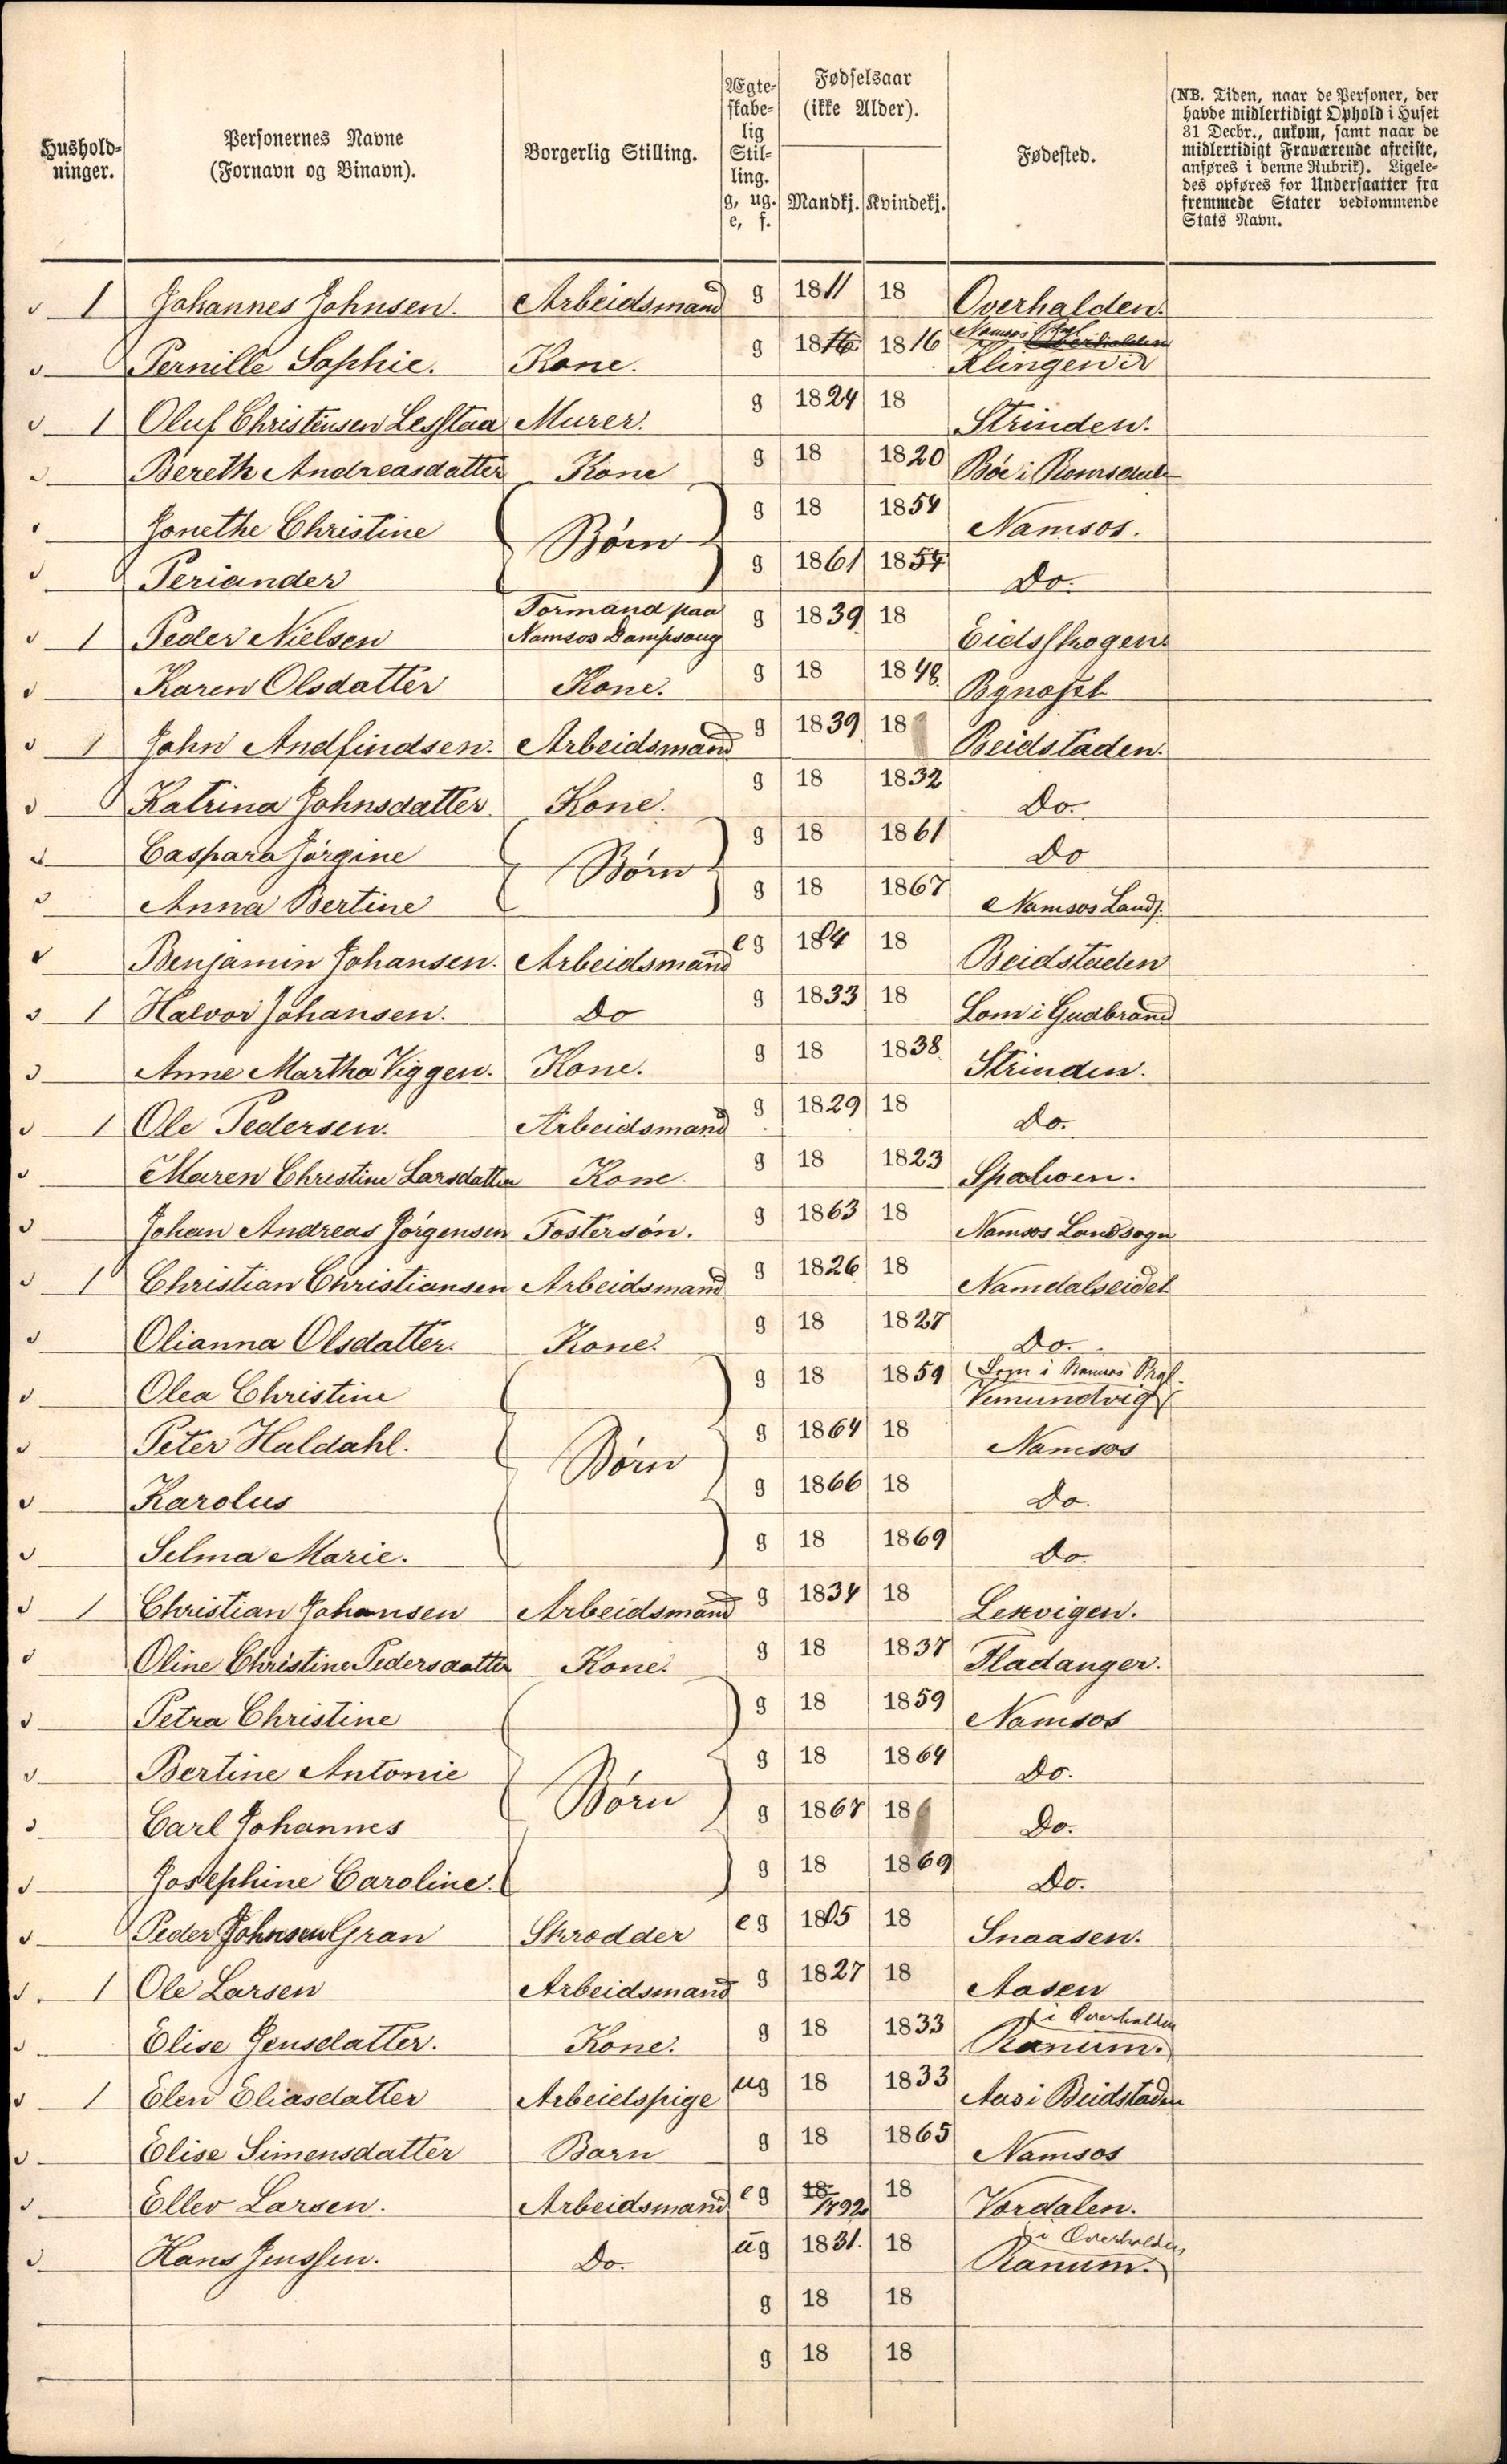 Hushold-
ninger.
Personernes Navne
(Fornavn og Binavn).
Borgerlig Stilling.
Ægte-
skabe-
lig
Stil-
ling.
g, ug.
e, f.
Fødselsaar
(ikke Alder).
Mandkj. Kvindekj.
Fødested.
(NB. Tiden, naar de Personer, der
havde midlertidigt Ophold i Huset
31 Decbr., ankom, samt naar de
midlertidigt Fraværende afreiste,
anføres i denne Rubrik). Ligele-
des opføres for Undersaatter fra
fremmede Stater vedkommende
Stats Navn.
1 Johannes Johnsen. Arbeidsmand g 1811 18 Overhalden.
Namsos Prgl Overhalden
Pernille Sophie. Kone. g 1816 1816 Klingen i
1 Oluf Christensen Lesstaa Murer. g 1824 18 Strinden.
Bereth Andreasdatter Kone g 18 1820 Böe i Romsdalen
Jonethe Christine Börn g 18 1854 Namsos.
Periander g 1861 1854 Do.
1 Peder Nielsen Formand paa Namsos Dampsaug g 1839 18 Eidsskogen.
Karen Olsdatter Kone. g 18 1848. Bynæsset
1 John Andfindsen. Arbeidsmand g 1839 18 Beidstaden.
Katrina Johnsdatter Kone. g 18 1832 Do.
Caspara Jörgine Börn g 18 1861 Do
Anna Bertine g 18 1867 Namsos Lands.
Benjamin Johansen. Arbeidsmand eg 1804 18 Beidstaden
1 Halvor Johansen. Do g 1833 18 Lom i Gudbrand
Anne Martha Viggen. Kone. g 18 1838. Strinden.
1 Ole Pedersen. Arbeidsmand g 1829 18 Do.
Maren Christine Larsdatter Kone. g 18 1823 Sparboen.
Johan Andreas Jörgensen Fostersön. g 1863 18 Namsos Landsogn
1 Christian Christiansen Arbeidsmand g 1826 18 Namdalseidet
Olianna Olsdatter. Kone. g 18 1827 Do.
Olea Christine g 18 1859 (Sogn i Namsos Prgl. Vemundvig
Peter Haldahl. Börn g 1864 18 Namsos
Karolus g 1866 18 Do.
Selma Marie. g 18 1869 Do.
1 Christian Johansen Arbeidsmand g 1834 18 Lexvigen.
Oline Christine Pedersdatter Kone. g 18 1837 Fladanger.
Petra Christine g 18 1859 Namsos
Bertine Antonie Börn g 18 1864 Do.
Carl Johannes g 1867 18 Do.
Josephine Caroline. g 18 1869 Do.
Peder Johnsen Gran Skrædder eg 1805 18 Snaasen.
1 Ole Larsen Arbeidsmand g 1827 18 Aasen
Elise Jensdatter. Kone. g 18 1833 i Overhallen Ranum.
1 Elen Eliasdatter Arbeidspige ug 18 1833 Aas i Beidstaden
Elise Simensdatter Barn g 18 1865 Namsos
Ellev Larsen. Arbeidsmand eg 18 1792 18 Værdalen.
Hans Jenssen. Do. ug 1831. 18 i Overhalden Ranum.
g 18 18
g 18 18